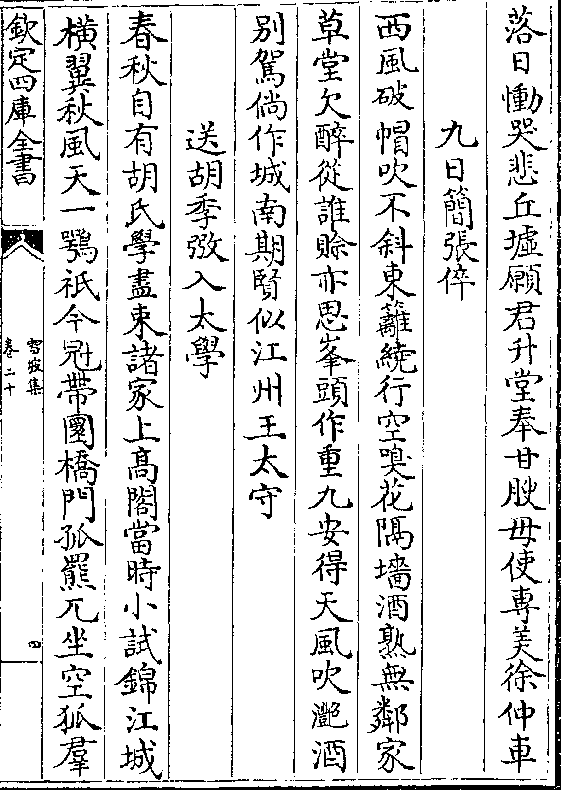 落日慟哭悲丘墟願君升堂奉甘腴毋使專美徐仲車
九日簡張倅
西風破帽吹不斜東籬繞行空嗅花隔墻酒熟無鄰家
草堂欠醉從誰賒亦思峯頭作重九安得天風吹灔酒
别駕倘作城南期賢似江州王太守
送胡季弢入太學
春秋自有胡氏學盡束諸家上高閣當時小試錦江城
橫翼秋風天一鶚祇今冠帶圜橋門孤羆兀坐空狐羣
欽定四庫全書
雪坡集
卷二十
四